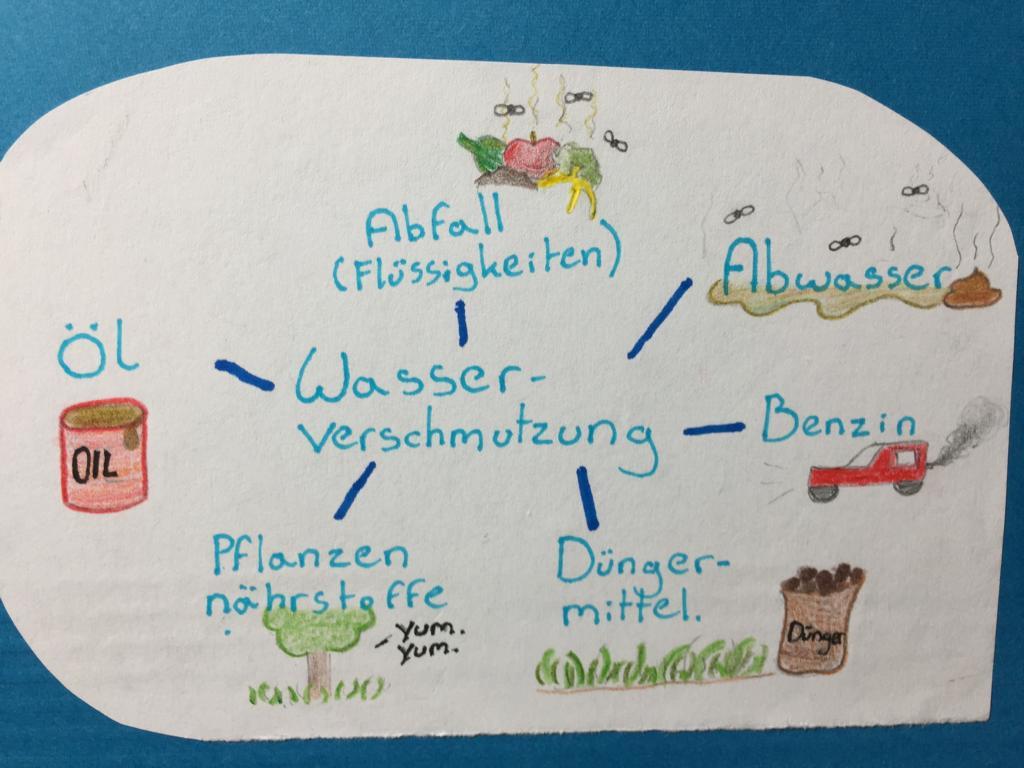 Abfall
(Flüssigkeiten)
Abwasser
Öl
OIL
Wasser-
verschmutzung
Benzin
Pflanzen
nährstoffe
Yum.
Yum.
Dünger-
mittel.
Dünger